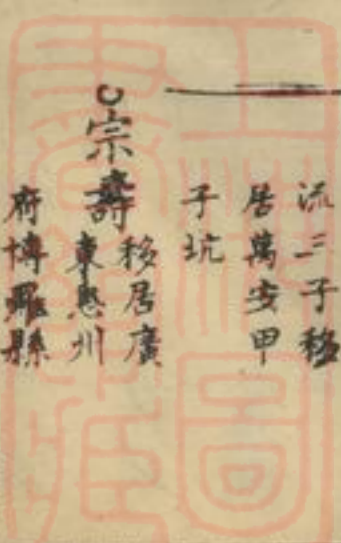 流三子移
居萬安甲
子坑
宗壽
移居廣
東惠州
府博羅縣